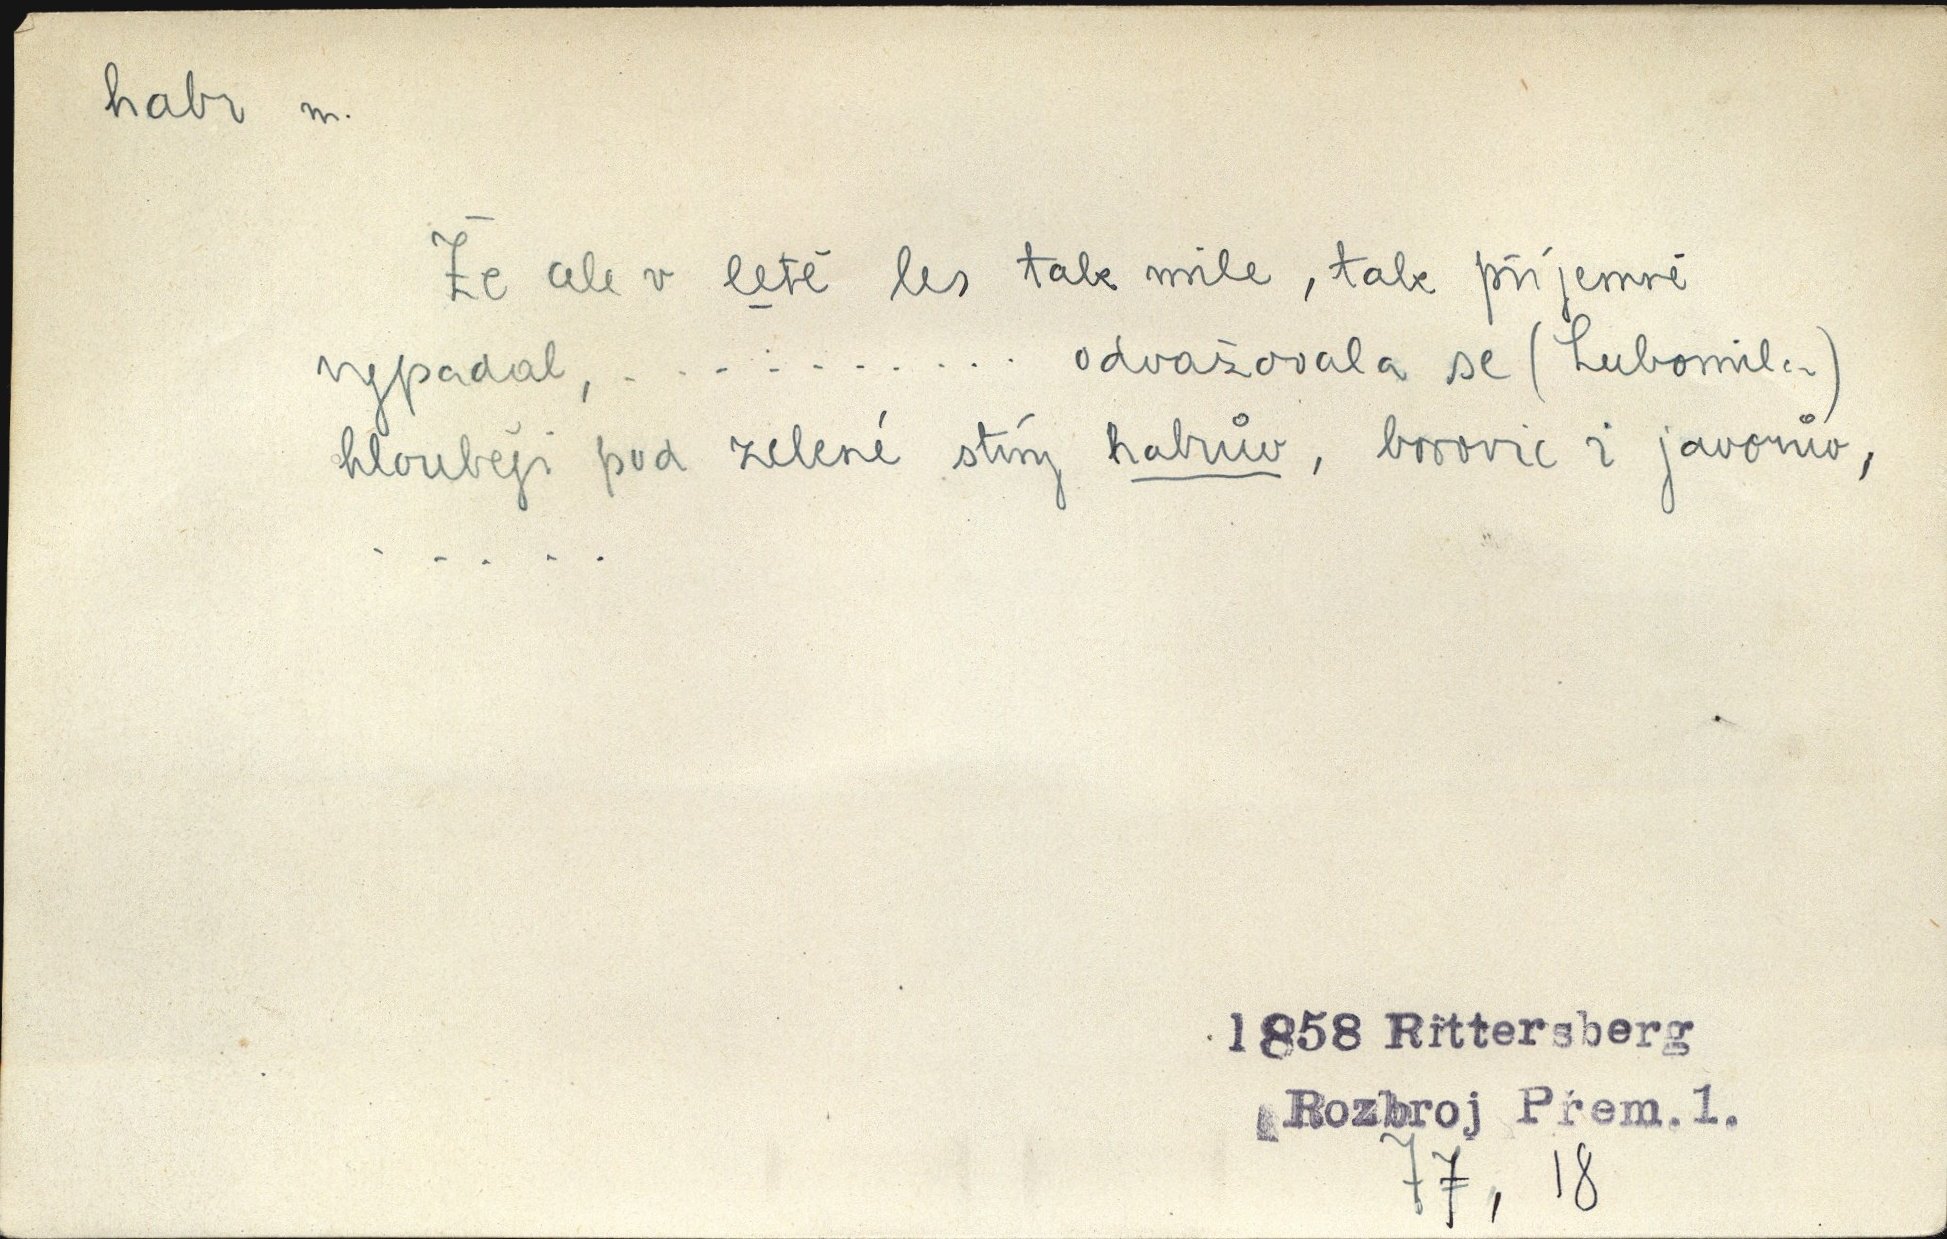 habr m.
Že ale v letě les tak mile, tak příjemně
vypadal, . . . . . . . . . . odvažovala se (Lubomila)
hlouběji pod zelené stíny habrův, borovic i javorův,
. . . . .
1858 Rittersberg
Rozbroj Přem. 1.
77, 18